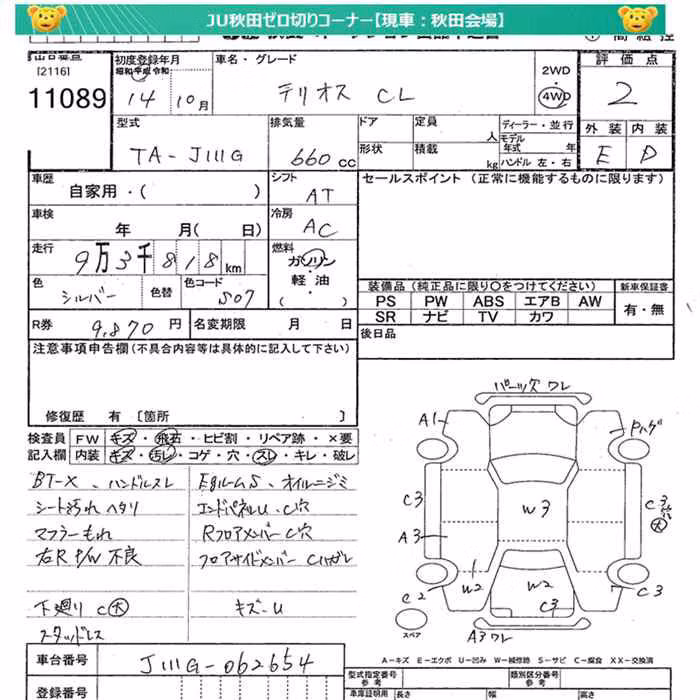 JU秋田ゼロ切りコーナー【現車：秋田会場】
[2116]
11089
初度登録年月
昭和 平成 令和
14 10月
車名・グレード
テリオス CL
2WD
・
4WD
評価点
2
外装 内装
E D
型式
TA-J111G
排気量
660cc
ドア 定員 人
形状 積載 kg
ディーラー・並行
モデル年式 年
ハンドル 左・右
車歴
自家用・( )
シフト
AT
セールスポイント (正常に機能するものに限ります)
車検
年 月( 日)
冷房
AC
走行
9万3千818km
燃料
ガソリン
軽油
( ・ )
色
シルバー
色替
色コード
S07
装備品 (純正品に限り〇をつけてください)
新車保証書
PS PW ABS エアB AW
SR ナビ TV カワ
有・無
R券 9,870円
名変期限 月 日
後日品
注意事項申告欄(不具合内容等は具体的に記入して下さい)
修復歴 有 [箇所 ]
検査員 FW キズ・飛石・ヒビ割・リペア跡・×要
記入欄 内装 キズ・汚レ・コゲ・穴・スレ・キレ・破レ
BT-X、ハンドルスレ
シート汚れ ヘタリ
マフラーもれ
右R P/W 不良
下廻り C大
スタッドレス
EgルームS・オイルニジミ
エンドパネルU・C穴
Rフロアメンバー C穴
フロアサイドメンバー Cハガレ
キズ-U
パーツ欠 ワレ
A1
Pハゲ
C3
W3
C3
大
A3
C2
W2
W2
C3
C3
A3ワレ
スペア
A-キズ E-エクボ U-凹み W-補修跡 S-サビ C-腐食 XX-交換済
車台番号
J111G-062654
登録番号
型式指定番号
参考
類別区分番号
参考
車庫証明用
長さ 幅 高さ